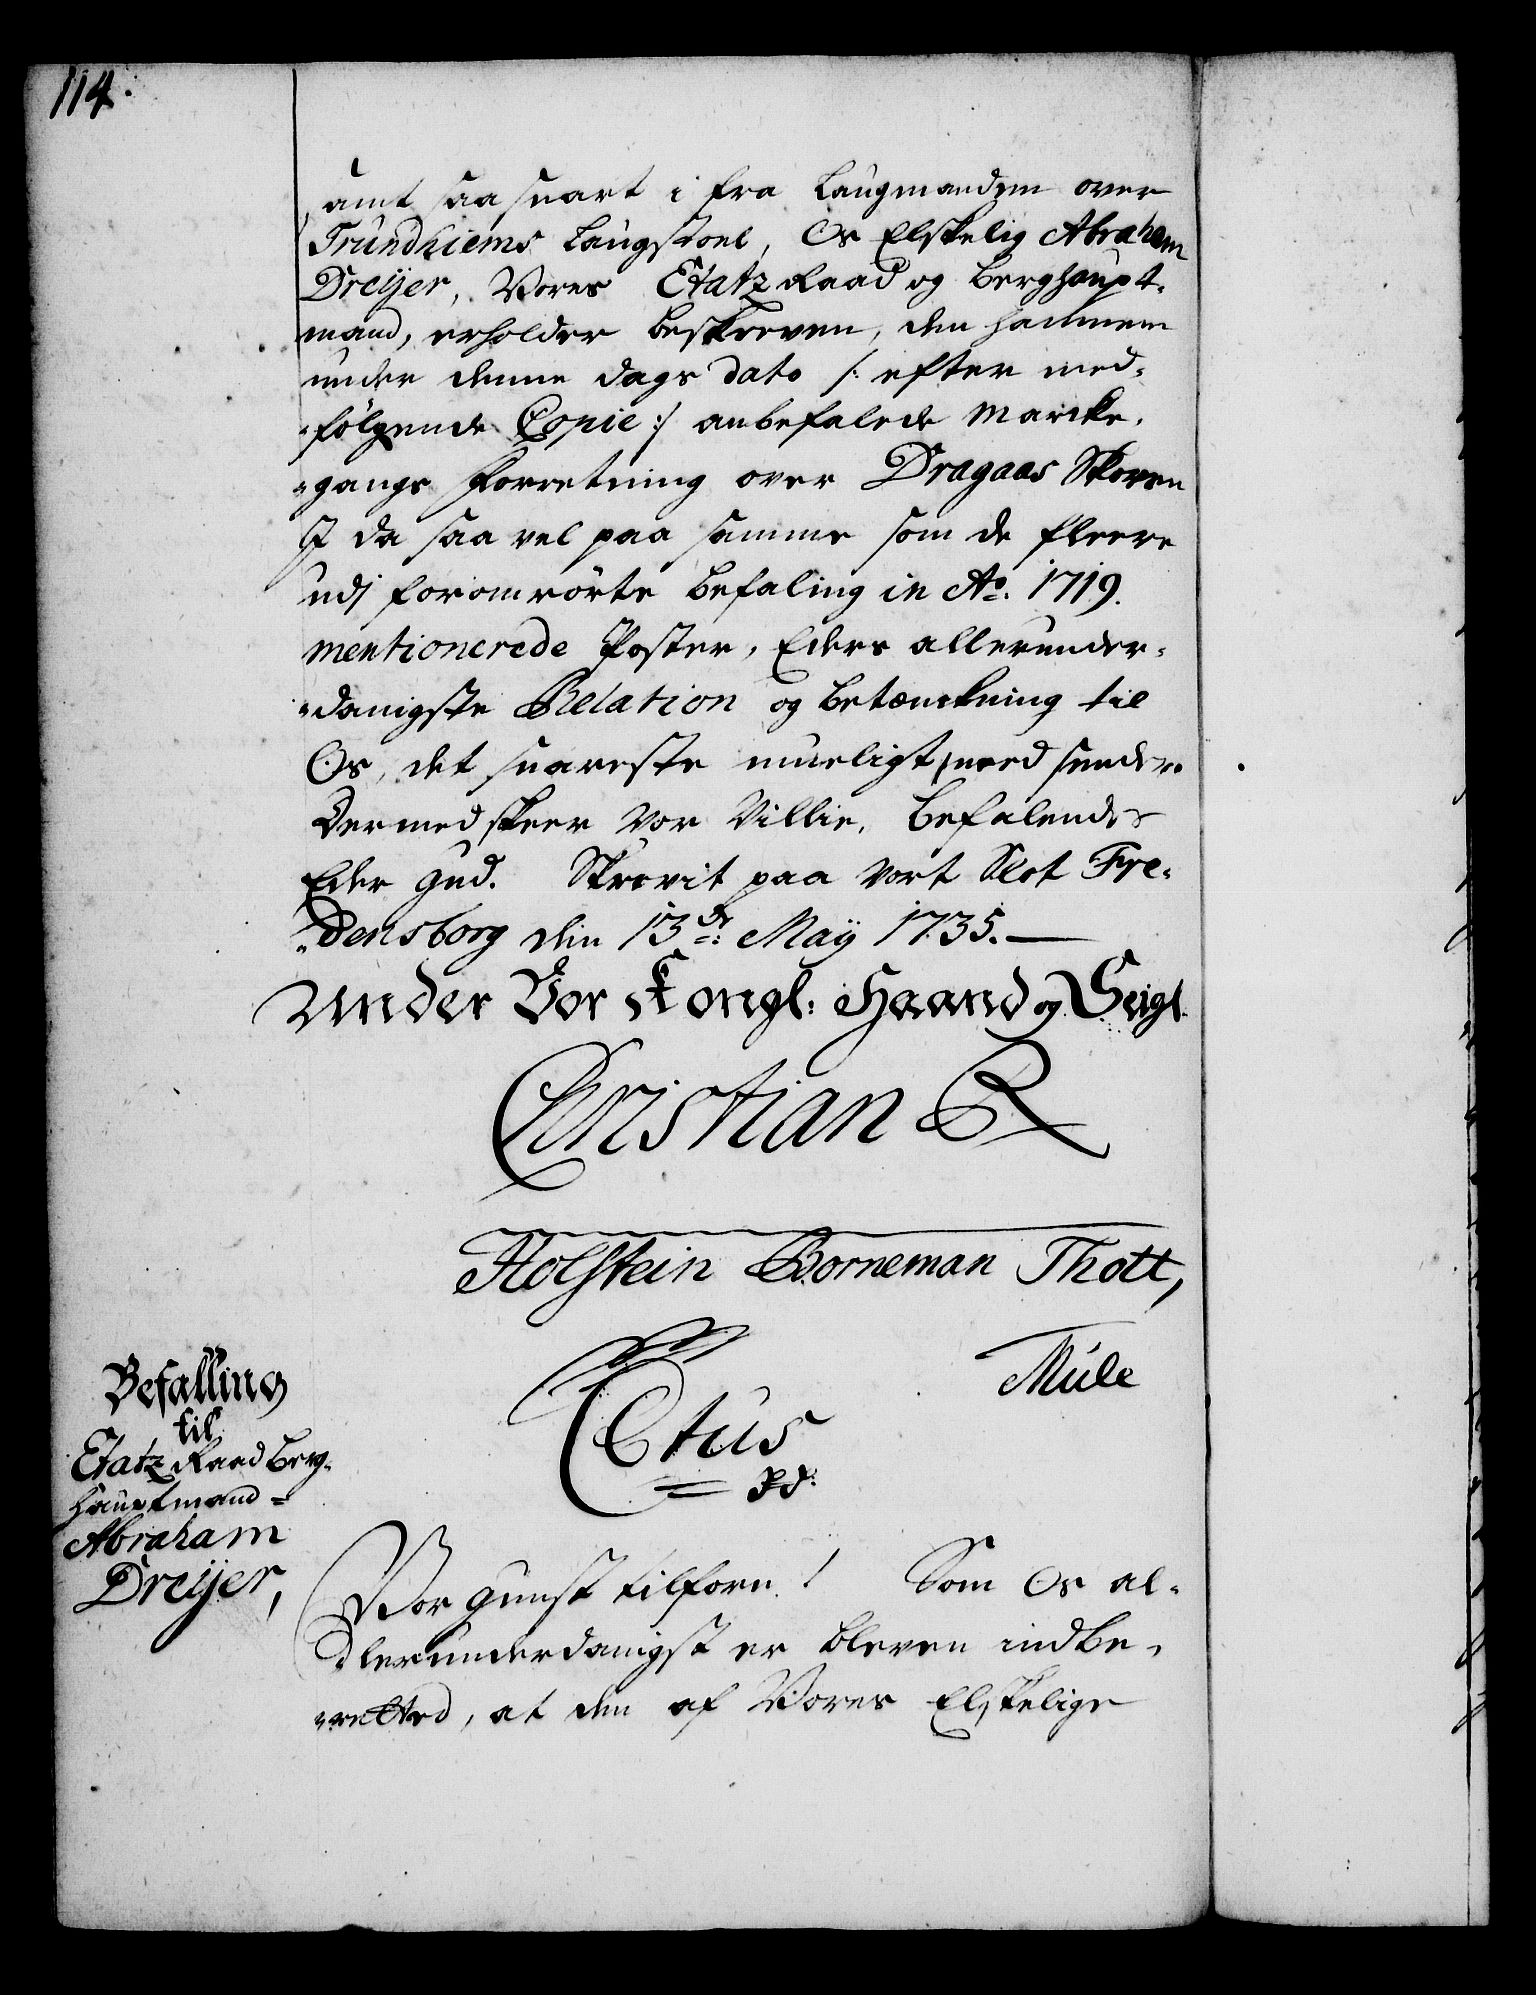 114.
samt saa snart i fra Laugmanden over
Trundhiems Laugstoel, Os Elskelig Abraham
Dreÿer, Vores Etatz Raad og Berghaupt-
mand, erholder beskreven, den hannem
under denne dags dato /: efter med-
-følgende Copie :/ anbefalede Marcke-
-gangs Forretning over Dragaas Skoven
I da saa vel paa samme som de fleere
udj forommrörte befaling in Ao. 1719.
mentionerede Poster, Eders allerunder-
-danigste Relation og betænckning til
Os, det snareste mueligt, need sender.
Dermed skeer Vor Villie, befalende
Eder Gud. Skrevit paa Vort Slot Fre-
-densborg den 13de: Maÿ 1735.
Under Vor Kongl: Haand og Seigl.
Christian R
Holstein Borneman Thott,
Müle
Befalling
til
Etatz Raad Berg-
hauptmand
Abraham
Dreÿer,
Ctus
Vor Gunst tilforn! Som Os al-
lerunderdanigst er bleven indbe-
-retted, at den af Vores Elskelige